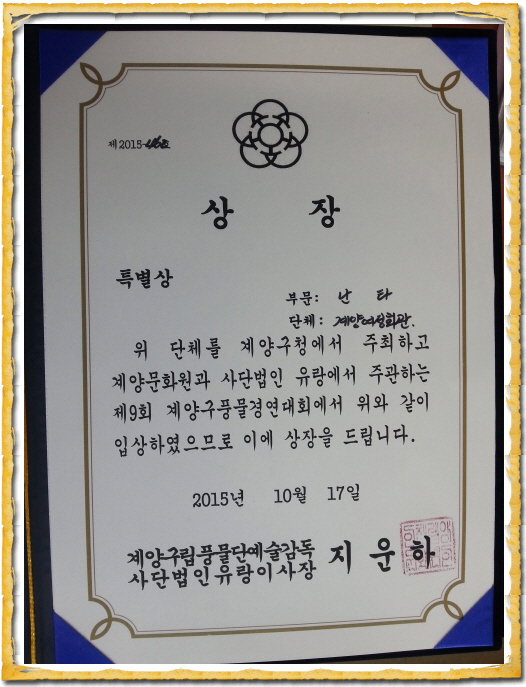 제2015-
상 장
특별상
부문: 난 타
단체: 계양여성회관.
위 단체를 계양구청에서 주최하고
계양문화원과 사단법인 유랑에서 주관하는
제9회 계양구풍물경연대회에서 위와 같이
입상하였으므로 이에 상장을 드립니다.
2015년 10월 17일
계양구립풍물단예술감독
사단법인유랑이사장 지 운 하